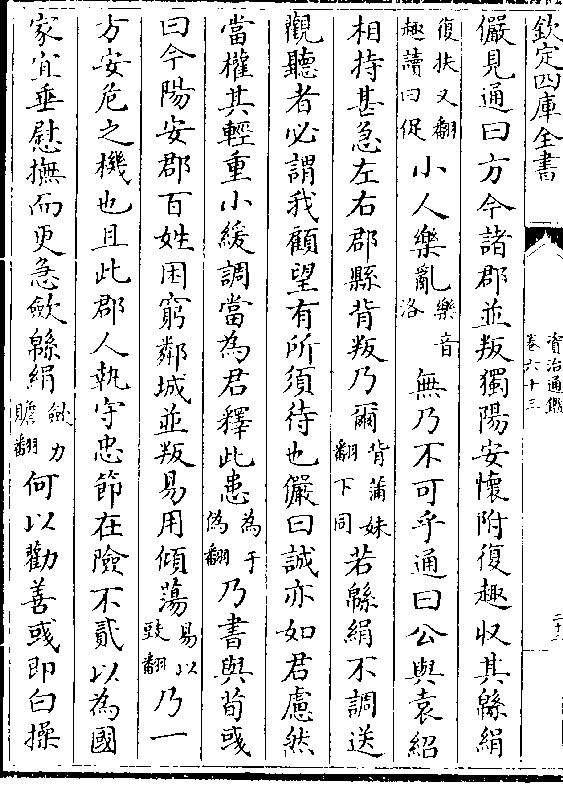 欽定四庫全書
資治通鑑
卷六十三
儼見通曰方今諸郡並叛獨陽安懷附復趣收其緜絹
復扶又翻
趣讀曰促
小人樂亂
樂音
洛
無乃不可乎通曰公與袁紹
相持甚急左右郡縣背叛乃爾
背蒲妹
翻下同
若緜絹不調送
觀聽者必謂我顧望有所須待也儼曰誠亦如君慮然
當權其輕重小緩調當為君釋此患
為于
偽翻
乃書與荀彧
曰今陽安郡百姓困窮鄰城並叛易用傾蕩
易以
豉翻
乃一
方安危之機也且此郡人執守忠節在險不貳以為國
家宜垂慰撫而更急斂緜絹
斂力
贍翻
何以勸善彧即白操